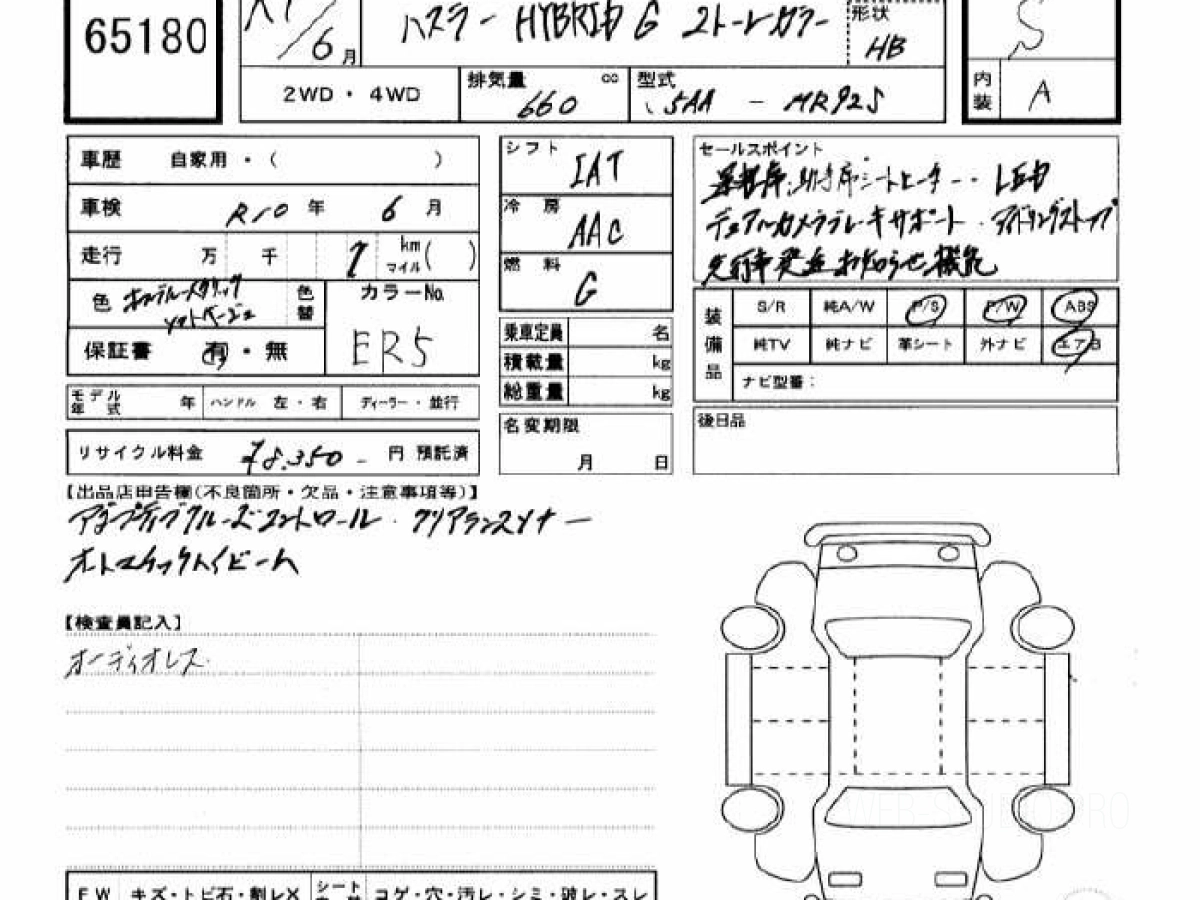 65180
R7/6月
ハスラー HYBRID G 2トーンカラー
形状
HB
S
2WD・4WD
排気量 cc
660
型式
5AA - MR92S
内装
A
車歴 自家用・( )
車検 R10年 6月
走行 万 千 7 km マイル ( )
色
メタリック
ソフトベージュ
色替
カラーNo.
ER5
保証書 有・無
モデル年式 年 ハンドル 左・右 ディーラー・並行
リサイクル料金 ¥8,350- 円 預託済
シフト
IAT
冷房
AAC
燃料
G
乗車定員 名
積載量 kg
総重量 kg
名変期限
月 日
セールスポイント
運転席、助手席シートヒーター・LED
デュアルカメラブレーキサポート・アイドリングストップ
先行車発進お知らせ機能
装備品
S/R 純A/W P/S P/W ABS
純TV 純ナビ 革シート 外ナビ エアB
ナビ型番:
後日品
【出品店申告欄(不良箇所・欠品・注意事項等)】
アダプティブクルーズコントロール・クリアランスソナー
オートマチックハイビーム
【検査員記入】
オーディオレス
FW キズ・トビ石・割レX シート コゲ・穴・汚レ・シミ・破レ・スレ